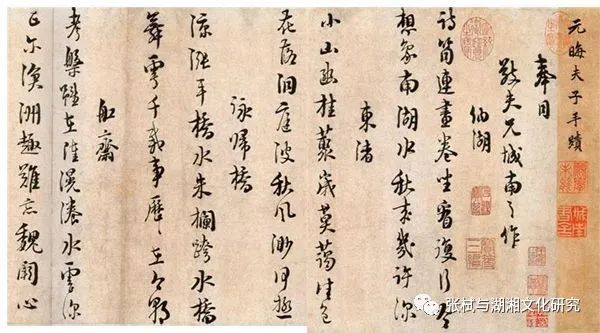 元晦夫子手蹟
奉同
敬夫兄城南之作
納湖
詩筒連畫卷坐看復行吟
想象南湖水秋來幾許深
東渚
小山幽桂叢歲莫藹佳色
花落洞庭波秋風渺何極
詠歸橋
綠漲平湖水朱欄跨小橋
舞雩千載事歷歷在今朝
船齋
考槃雖在陸滉瀁水雲深
正爾滄洲趣難忘魏闕心
张栻与湖湘文化研究